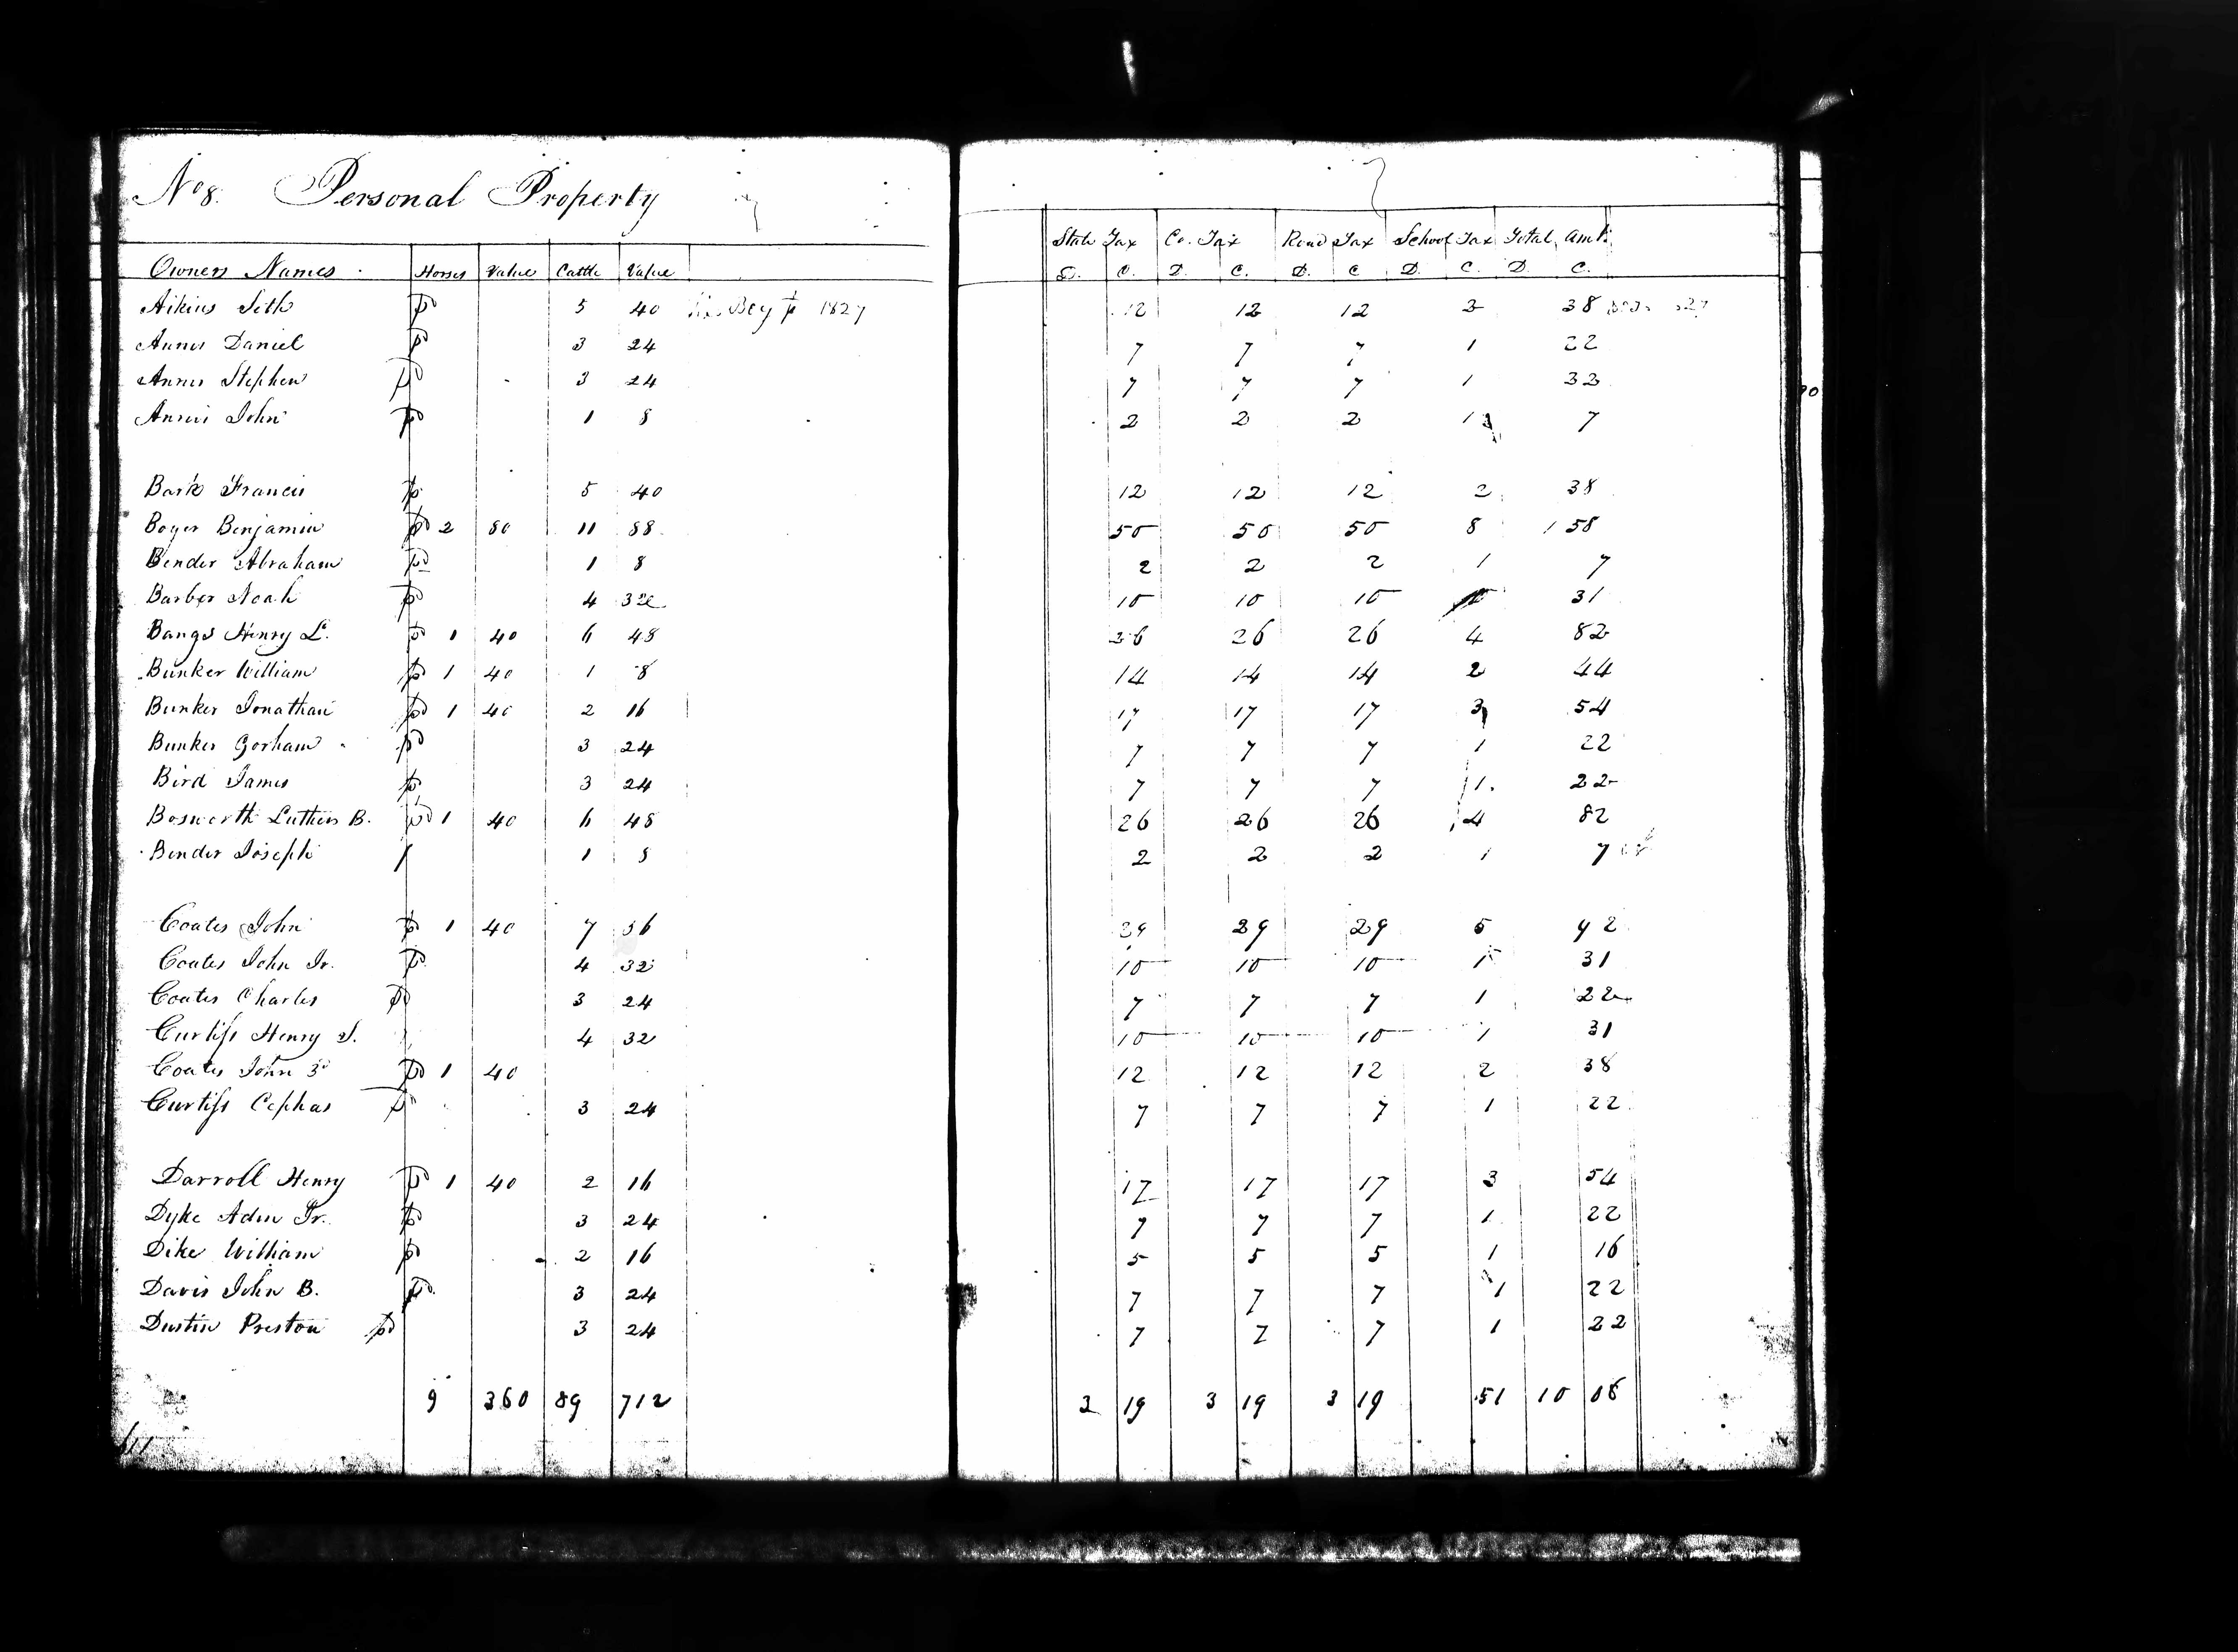 No 8. Personal Property
State Tax Co. Tax Road Tax School Tax Total Amt.
Owners Names Horses Value Cattle Value D. C. D. C. D. C D. C. D. C.
Aikins Seth pd 5 40 1827 12 12 12 2 38
Annis Daniel pd 3 24 7 7 7 1 22
Annis Stephen pd 3 24 7 7 7 1 22
Annis John pd 1 8 2 2 2 1 7
Bark Francis pd 5 40 12 12 12 2 38
Boyer Benjamin pd 2 80 11 88 50 50 50 8 1 58
Bender Abraham pd 1 8 2 2 2 1 7
Barber Noah pd 4 32 10 10 10 31
Bangs Henry L. pd 1 40 6 48 26 26 26 4 82
Bunker William pd 1 40 1 8 14 14 14 2 44
Bunker Jonathan pd 1 40 2 16 17 17 17 3 54
Bunker Gorham pd 3 24 7 7 7 1 22
Bird James pd 3 24 7 7 7 1. 22
Bosworth Luther B. pd 1 40 6 48 26 26 26 4 82
Bender Joseph 1 8 2 2 2 1 7
Coates John pd 1 40 7 56 29 29 29 5 92
Coates John Jr. pd 4 32 10 10 10 1 31
Coates Charles pd 3 24 7 7 7 1 22
Curtiss Henry S. 4 32 10 10 10 1 31
Coates John 3d pd 1 40 12 12 12 2 38
Curtiss Cephas pd 3 24 7 7 7 1 22
Darroll Henry pd 1 40 2 16 17 17 17 3 54
Dyke Adin Jr. pd 3 24 7 7 7 1 22
Dike William pd 2 16 5 5 5 1 16
Davis John B. pd 3 24 7 7 7 1 22
Dustin Preston pd 3 24 7 7 7 1 22
9 360 89 712 3 19 3 19 3 19 51 10 08